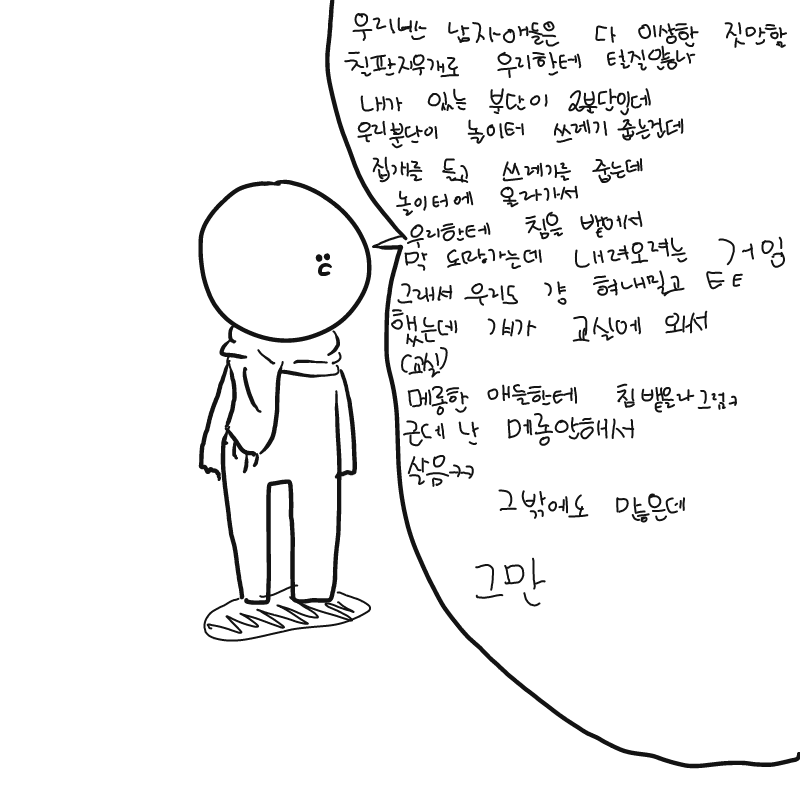 우리반 남자애들은 다 이상한 짓만함
칠판지우개로 우리한테 털질않나
내가 있는 분단이 2분단인데
우리분단이 놀이터 쓰레기 줍는건데
집개를 들고 쓰레기를 줍는데
놀이터에 올라가서
우리한테 침을 뱉어서
막 도망가는데 내려오려는 거임
그래서 우리도 걍 혀내밀고 튀튀
했는데 걔가 교실에 와서
(교실)
메롱한 애들한테 침뱉을라그럼ㅋ
근데 난 메롱안해서
살음ㅋㅋ
그밖에도 많은데
그만